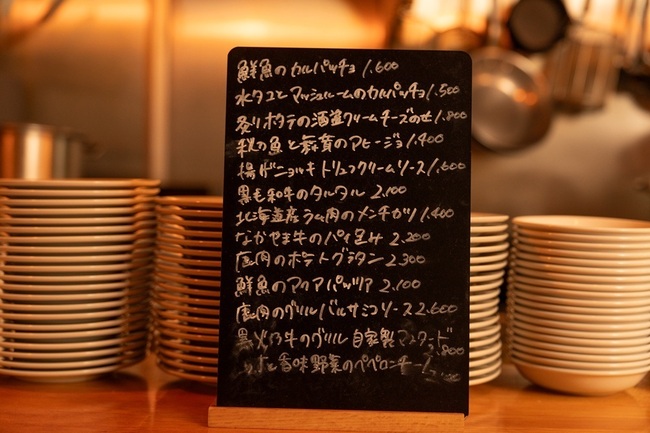 鮮魚のカルパッチョ 1.600
水タコとマッシュルームのカルパッチョ 1.500
炙りホタテの酒盗クリームチーズのせ 1.800
秋の魚と舞茸のアヒージョ 1.400
揚げニョッキ トリュフクリームソース 1.600
黒毛和牛のタルタル 2.100
北海道産ラム肉のメンチカツ 1.400
なかやま牛のパイ包み 2.200
鹿肉のポテトグラタン 2.300
鮮魚のアクアパッツァ 2.100
鹿肉のグリル バルサミコソース 2.600
黒 牛のグリル 自家製マスタード
.800
と香味野菜のペペロンチーノ